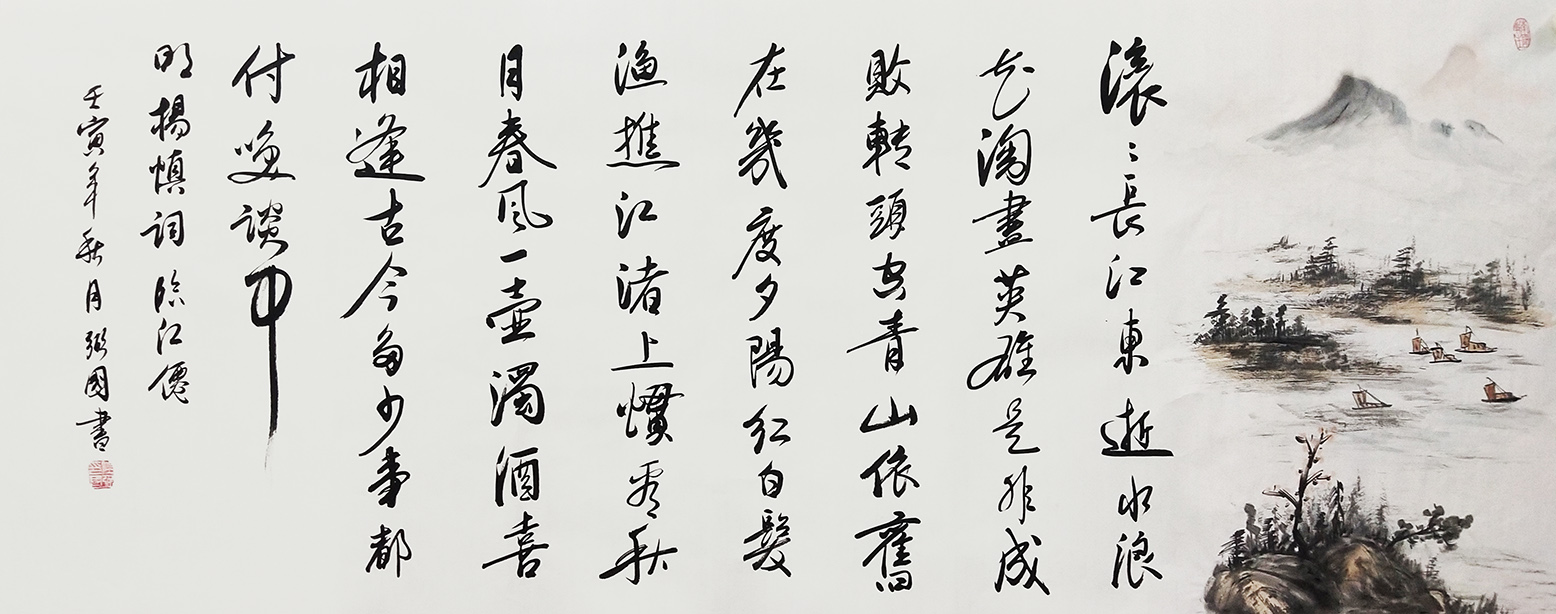 滚〻長江東逝水浪
花淘盡英雄是非成
敗轉頭空青山依舊
在幾度夕陽紅白髮
漁樵江渚上慣看秋
月春風一壺濁酒喜
相逢古今多少事都
付笑談中
明楊慎詞臨江僊
壬寅年秋月張國書